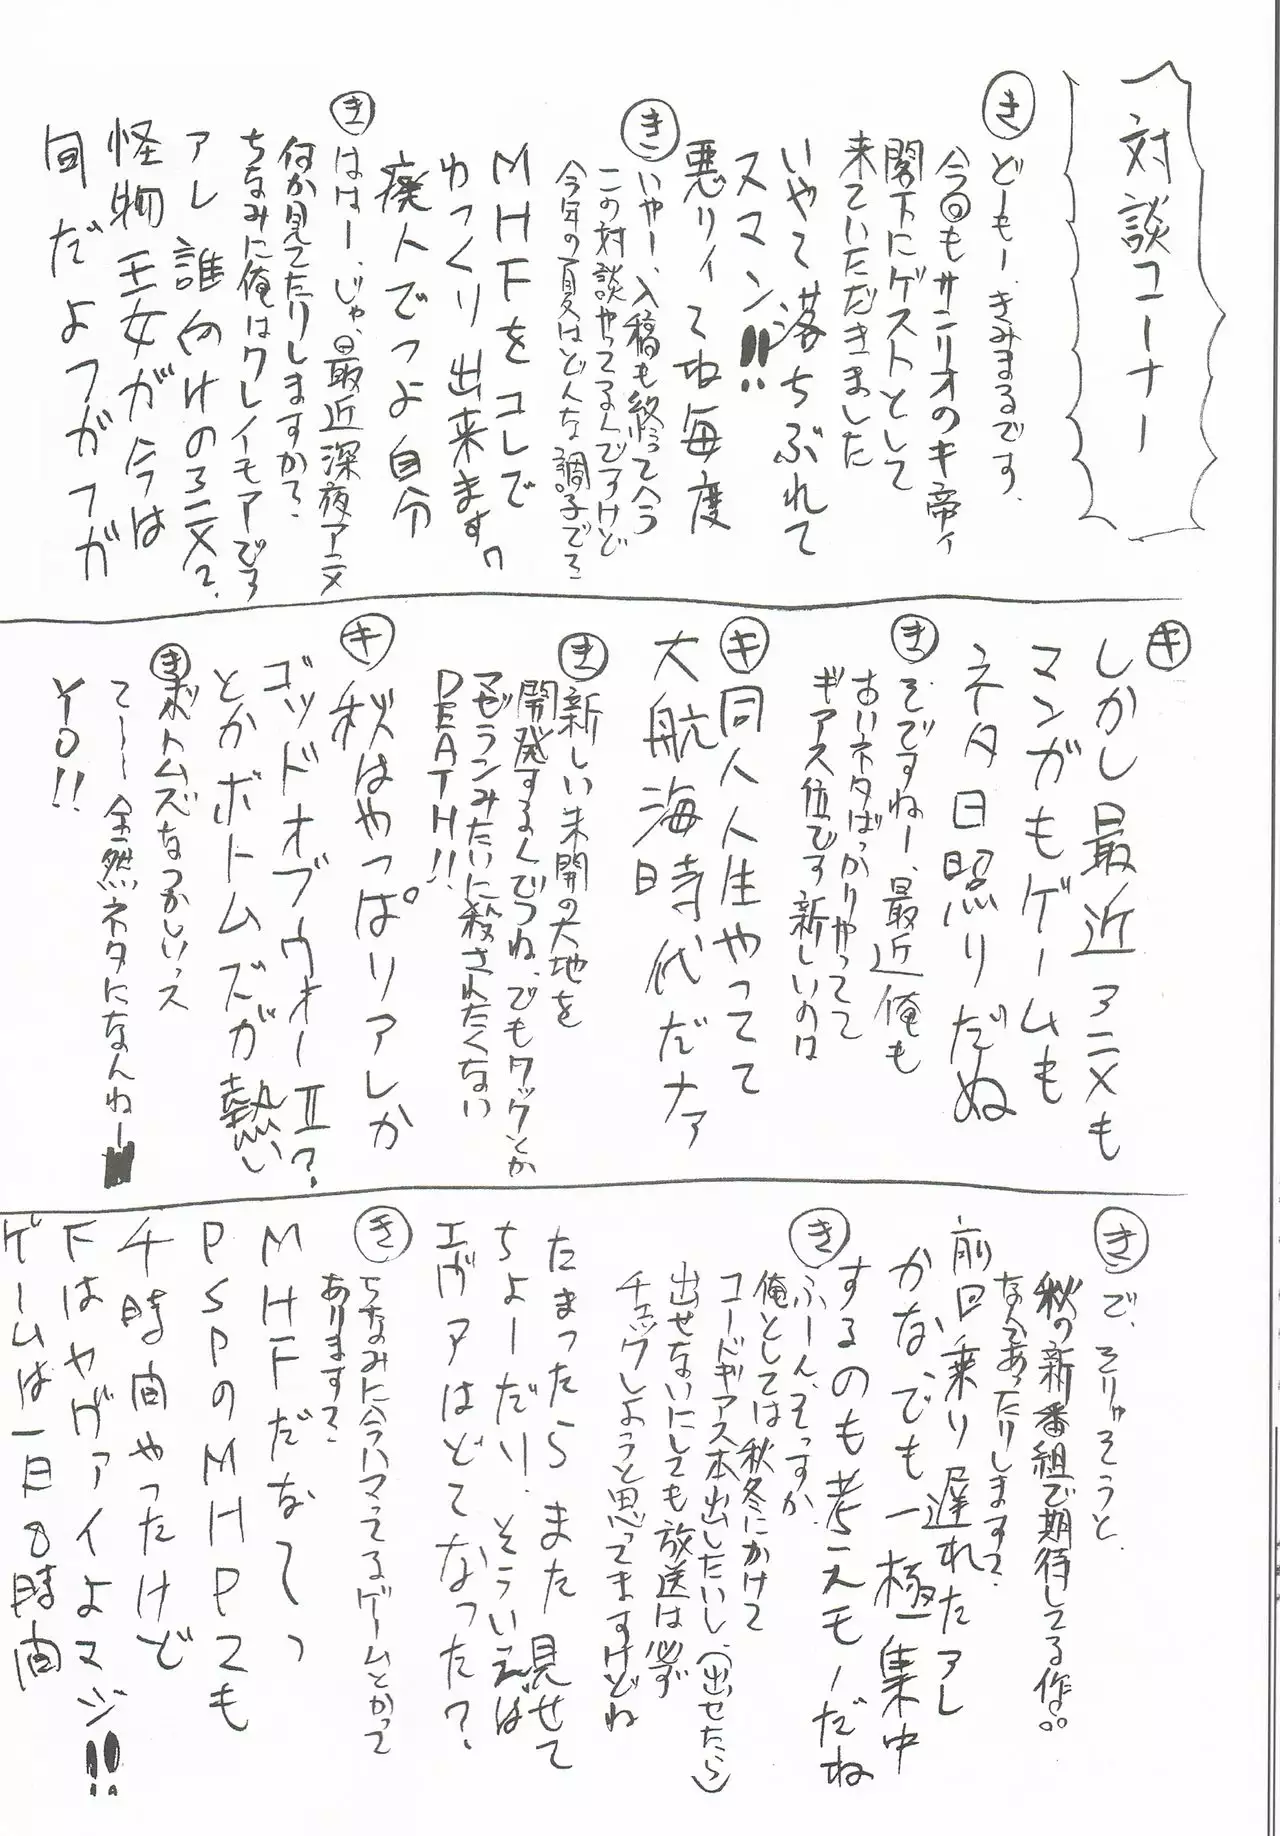 対談コーナー
き どーもー、きみまるです、
今回もサンリオのキ帝ィ
閣下にゲストとして
来ていただきました
いやて落ちぶれて
スマン!!
悪リィてね毎度
き いやー、入稿も終って今
この対談やってるんですけど
今年の夏はどんな調子でろ
MHFをコレで
ゆっくり出来ます。
廃人でつよ自分
き はは一、じゃ、最近深夜アニメ
何か見てたりしますか?
ちなみに俺はクレイモアです
アレ誰向けのアニメ?
怪物王女が今は
旬だよフガフガ
キ しかし最近アニメも
マンガもゲームも
ネタ日照りだぬ
き そですねー、最近俺も
古いネタばっかりやってて
ギアス位です新しいのは
キ 同人人生やってて
大航海時代だナァ
き 新しい未開の大地を
開発するんでつね、でもクックとか
マゼランみたいに殺されたくない
DEATH!!
キ 秋はやっぱリアレか
ゴッドオブウォーⅡ?
とかボトムズが熱い
き ボトムズなつかしいっス
て〜〜全然ネタになんねー
YO!!
き で、そりゃそうと、
秋の新番組で期待してる作。。
なんてあったりしますて?
前回乗り遅れたアレ
かな、でも一極集中
するのも考えモノだね
き ふーん、そっすか、
俺としては秋冬にかけて
コードギアス本出したいし、(出せたら)
出せないにしても放送は必ず
チェックしようと思ってますけどね
たまったらまた見せて
ちょーだい、そういえば
エヴァはどてなった?
き ちなみに今ハマってるゲームとかって
あります?
MHFだなてっ
PSPのMHPスも
千時間やったけど
Fはヤヴァイよマジ!!
ゲームは一日8時間